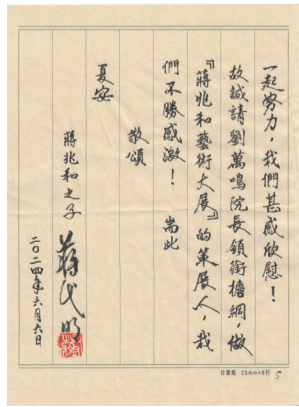 一起努力，我們甚感欣慰！
故誠請劉萬鳴院長領銜擔綱，做
『蔣兆和藝術大展』的策展人，我
們不勝感激！　耑此
敬頌
夏安
蔣兆和之子
二〇二四年六月六日
日課紙 25mm×8行 5